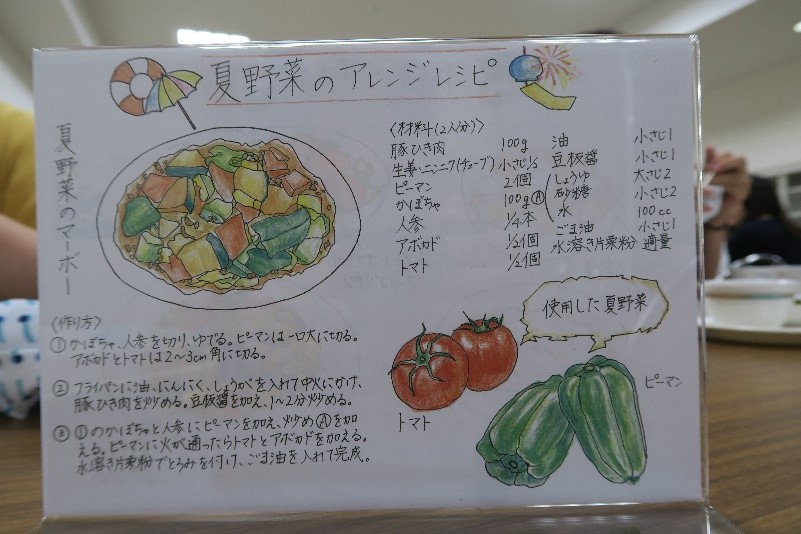 夏野菜のアレンジレシピ
夏野菜のマーボー
〈材料(2人分)〉
豚ひき肉 100g
生姜・ニンニク(チューブ) 小さじ1/2
ピーマン 2個
かぼちゃ 100g
人参 1/4本
アボカド 1/2個
トマト 1/2個
油 小さじ1
豆板醤 小さじ1
Ⓐ しょうゆ 大さじ2
砂糖 小さじ2
水 100cc
ごま油 小さじ1
水溶き片栗粉 適量
〈作り方〉
① かぼちゃ、人参を切り、ゆでる。ピーマンは一口大に切る。
アボカドとトマトは2〜3cm角に切る。
② フライパンに油、にんにく、しょうがを入れて中火にかけ、
豚ひき肉を炒める。豆板醤を加え、1〜2分炒める。
③ ①のかぼちゃと人参にピーマンを加え、炒めⒶを加
える。ピーマンに火が通ったらトマトとアボカドを加える。
水溶き片栗粉でとろみを付け、ごま油を入れて完成。
使用した夏野菜
トマト
ピーマン